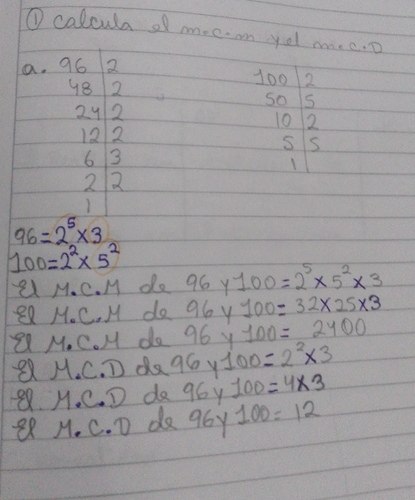 ① calcula el m.c.m y el m.c.D
a. 96 | 2
48 | 2
24 | 2
12 | 2
6 | 3
2 | 2
1
100 | 2
50 | 5
10 | 2
5 | 5
1
96 = 2⁵ x 3
100 = 2² x 5²
El M.C.M de 96 y 100 = 2⁵ x 5² x 3
El M.C.M de 96 y 100 = 32 x 25 x 3
El M.C.M de 96 y 100 = 2400
El M.C.D de 96 y 100 = 2² x 3
El M.C.D de 96 y 100 = 4 x 3
El M.C.D de 96 y 100 = 12